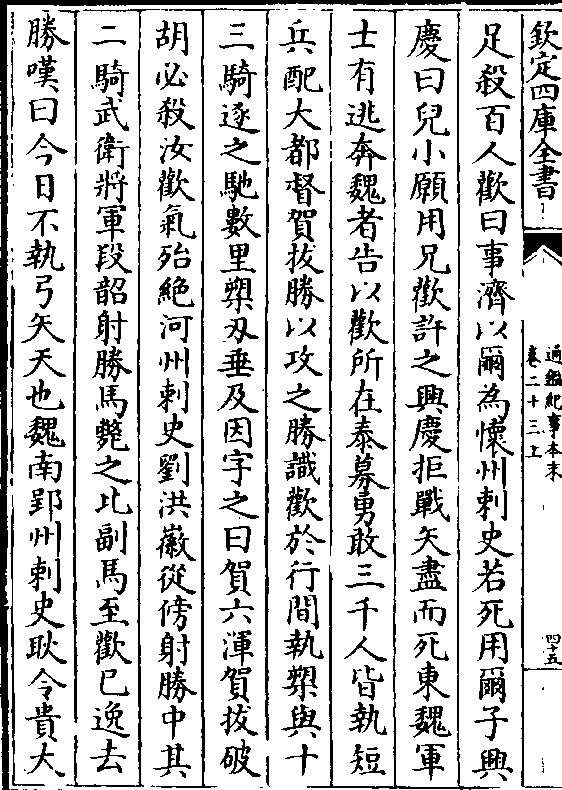 欽定四庫全書
通鑑紀事本末
卷二十三上
四十五
足殺百人歡曰事濟以爾為懷州刺史若死用爾子興
慶曰兒小願用兄歡許之興慶拒戰矢盡而死東魏軍
士有逃奔魏者告以歡所在泰募勇敢三千人皆執短
兵配大都督賀拔勝以攻之勝識歡於行間執槊與十
三騎逐之馳數里槊刃垂及因字之曰賀六渾賀拔破
胡必殺汝歡氣殆絶河州刺史劉洪徽從傍射勝中其
二騎武衛將軍段韶射勝馬斃之比副馬至歡已逸去
勝嘆曰今日不執弓矢天也魏南郢州刺史耿令貴大